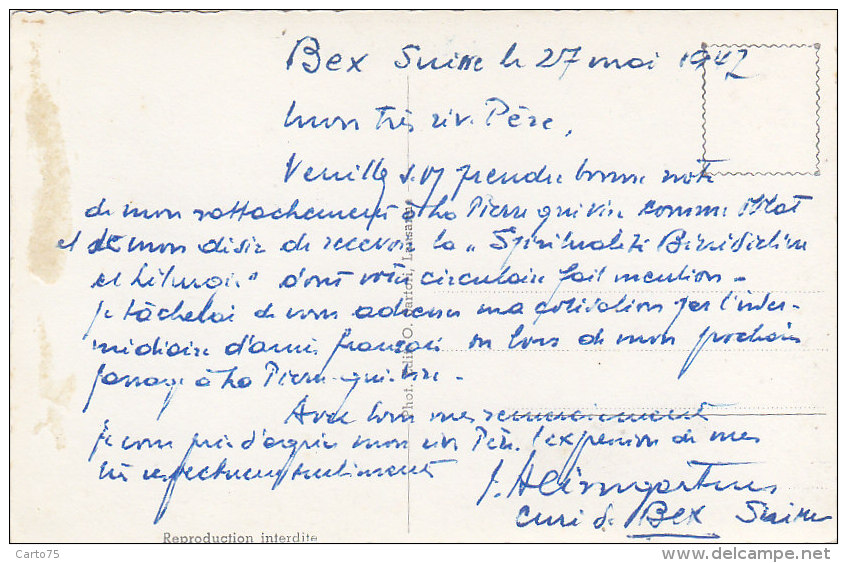 Bex Suisse le 27 mai 1947
Mon très rév. Père,
Veuillez s.v.p prendre bonne note
de mon rattachement à La Pierre-qui-vire comme oblat
et de mon désir de recevoir la "Spiritualité Bénédictine
et Liturgie" dont votre circulaire fait mention -
je tâcherai de vous adresser ma cotisation par l'inter-
médiaire d'amis français ou lors de mon prochain
passage à La Pierre-qui-vire -
Avec tous mes remerciements
je vous prie d'agréer mon rév. Père, l'expression de mes
très respectueux sentiments
curé de Bex Suisse
Phot. Edit. O. Lausanne
Reproduction interdite
Carto75
delcampe.net